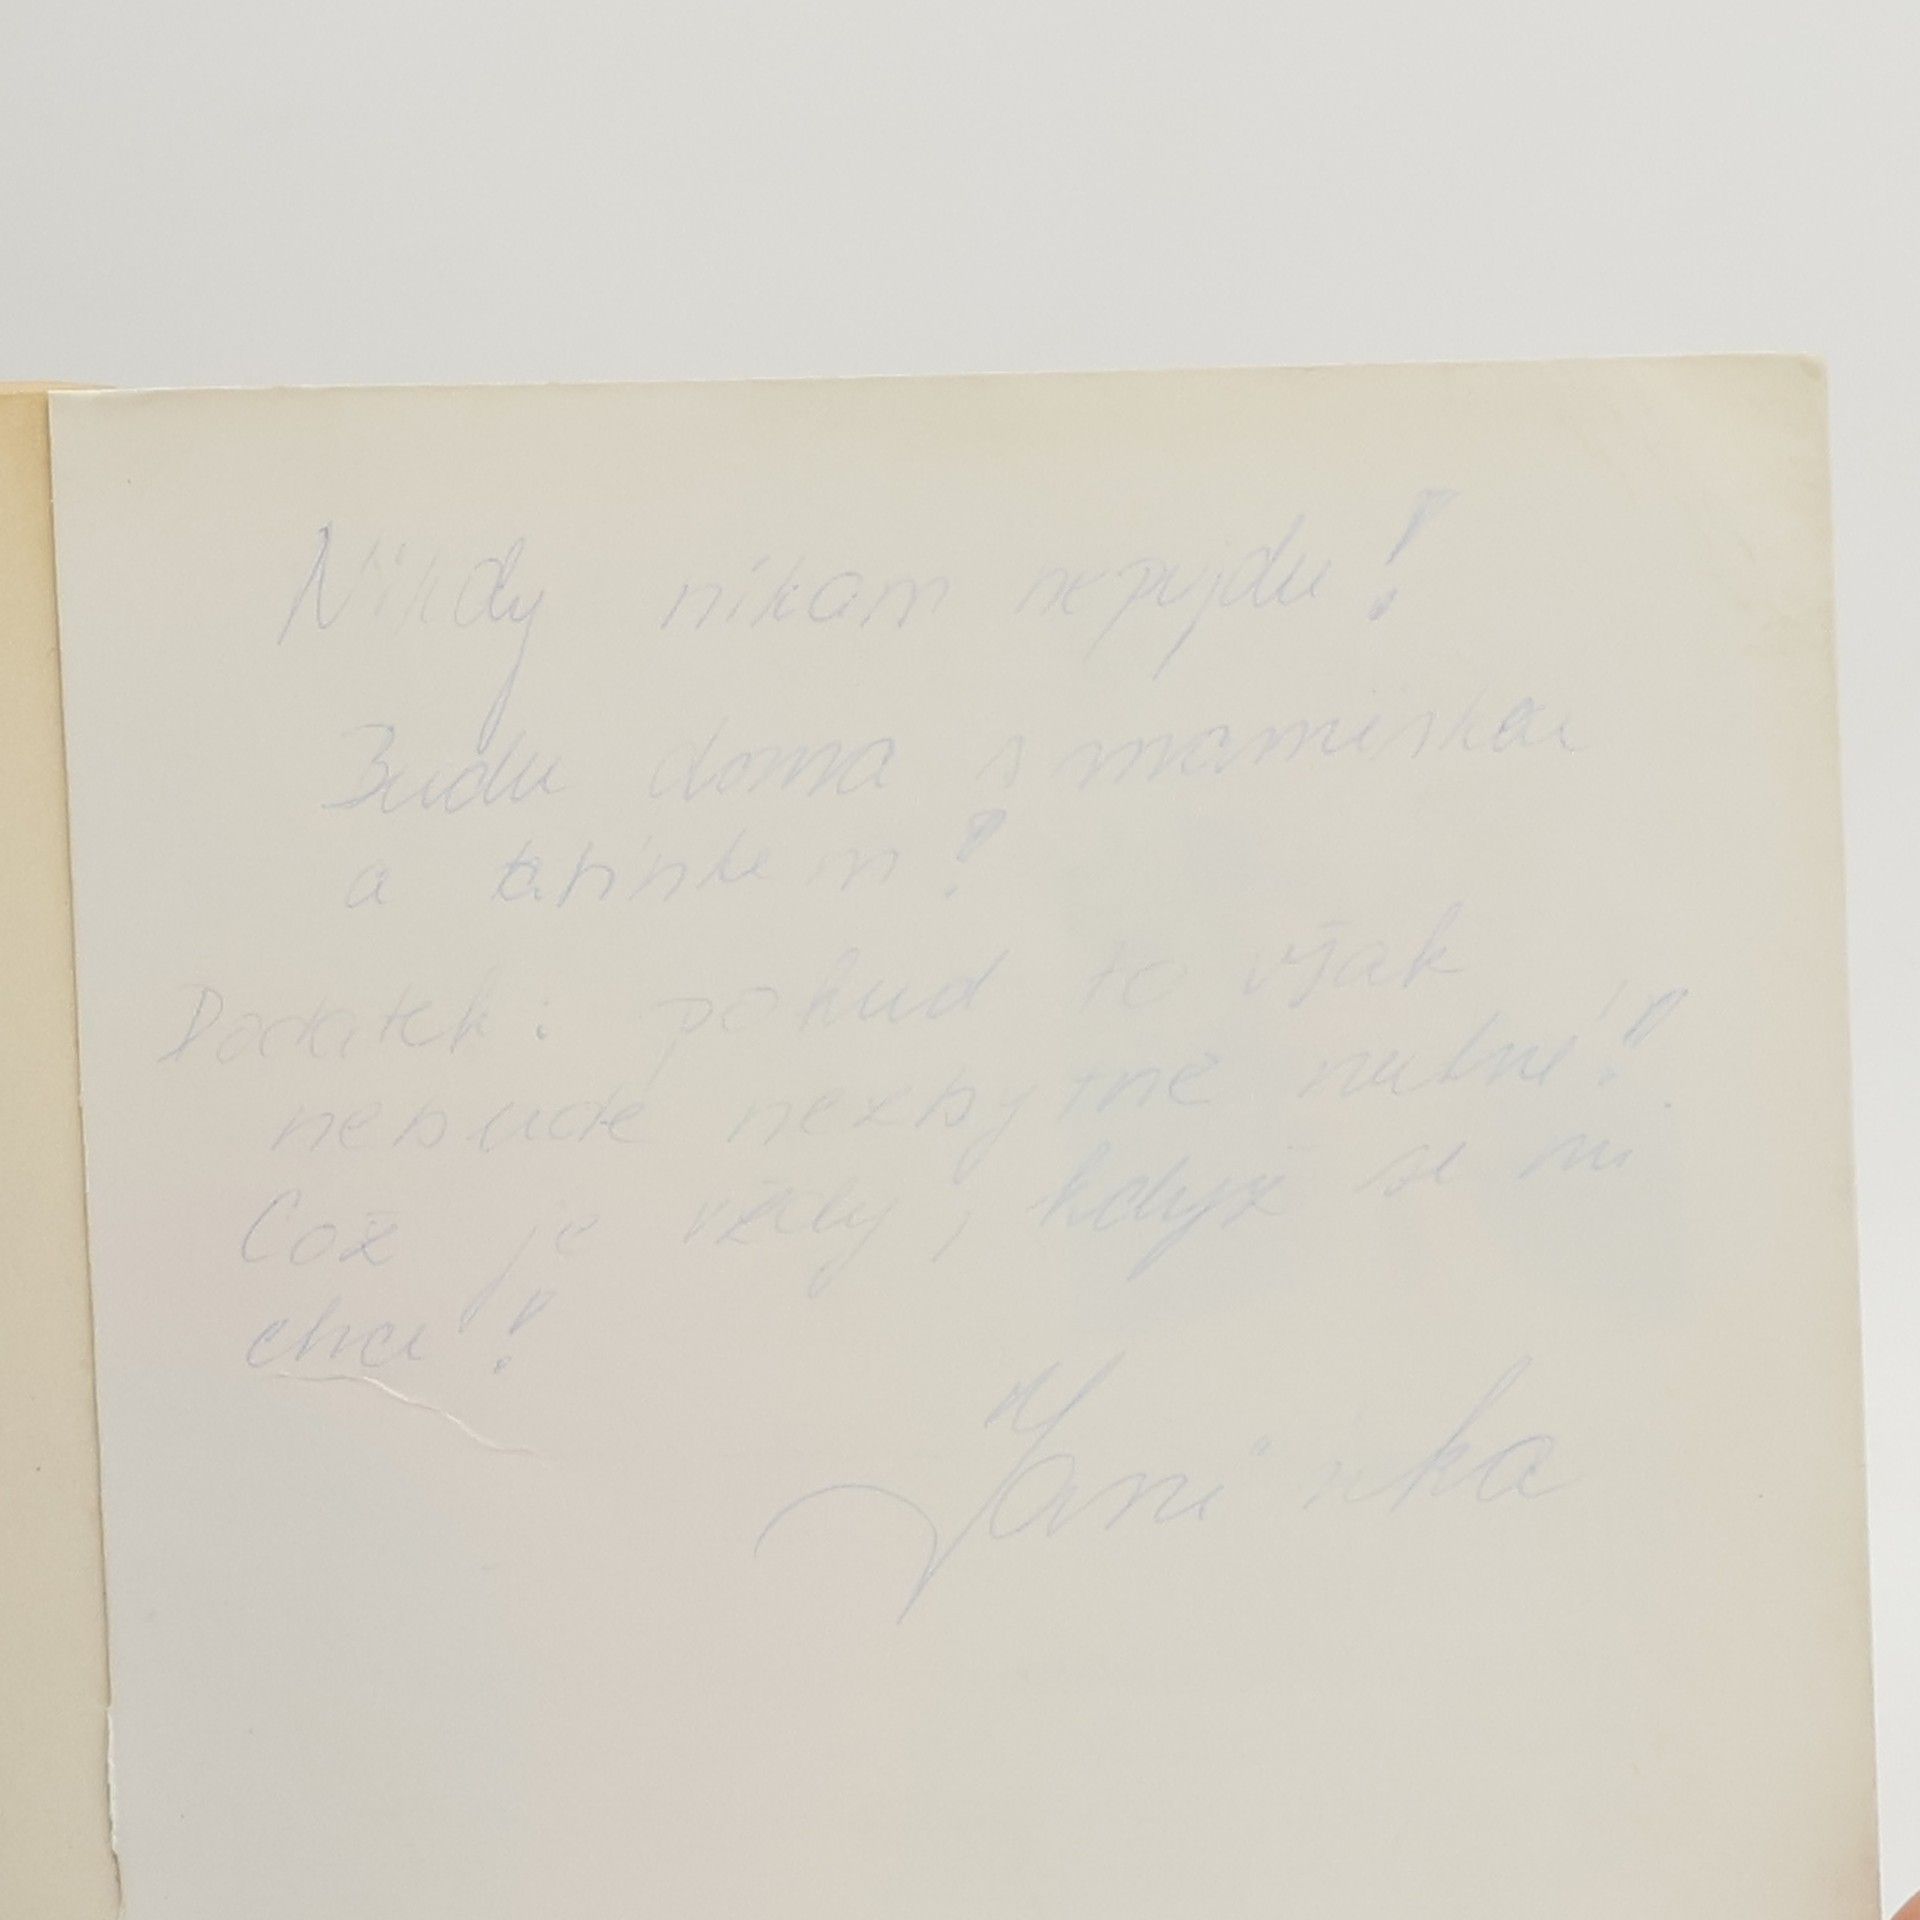 Nikdy nikam nepujdu!
Budu doma s maminkou
a tatínkem!
Dodatek: pokud to však
nebude nezbytně nutné!
Což je vždy, když se mi
chce!
Janinka